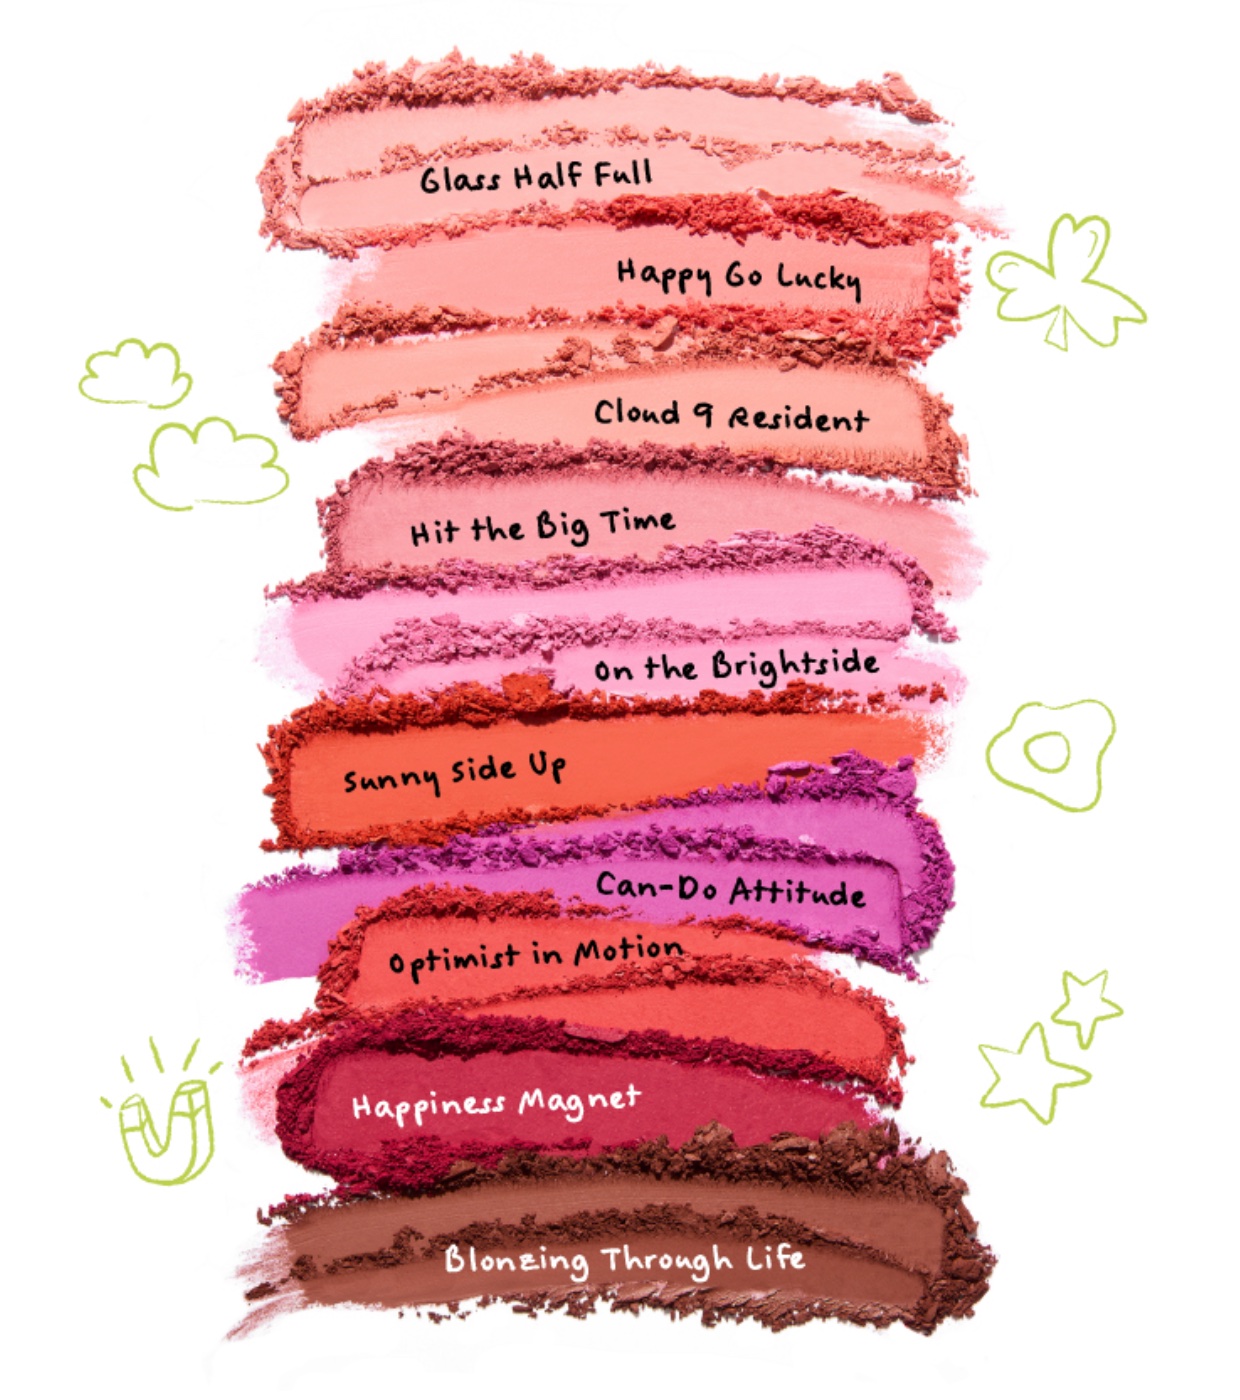 Glass Half Full
Happy Go Lucky
Cloud 9 Resident
Hit the Big Time
On the Brightside
Sunny Side Up
Can-Do Attitude
Optimist in Motion
Happiness Magnet
Blonzing Through Life